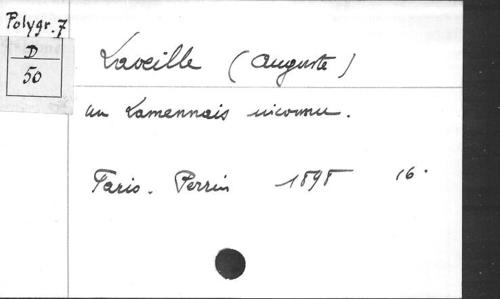 Polygr. 7
D
50
Laveille (Auguste)
un Lamennais inconnu.
Paris. Perrin 1898 16.